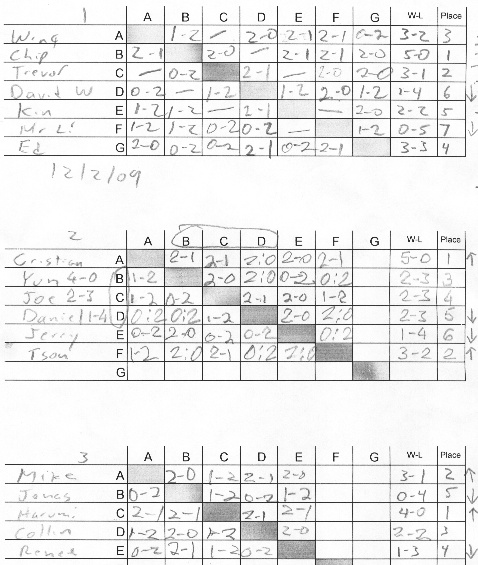 1 A B C D E F G W-L Place
Wing A 1-2 — 2-0 2-1 2-1 0-2 3-2 3
Chip B 2-1 2-0 — 2-1 2-1 2-0 5-0 1
Trevor C — 0-2 2-1 — 2-0 2-0 3-1 2
David W D 0-2 — 1-2 1-2 2-0 1-2 1-4 6 ↓
Kin E 1-2 1-2 — 2-1 — 2-0 2-2 5
Mr Li F 1-2 1-2 0-2 0-2 — 1-2 0-5 7 ↓
Ed G 2-0 0-2 0-2 2-1 0-2 2-1 3-3 4
12/2/09
2 A B C D E F G W-L Place
Cristian A 2-1 2-1 2:0 2-0 2-1 5-0 1 ↑
Yun 4-0 B 1-2 2-0 2:0 0-2 0:2 2-3 3
Joe 2-3 C 1-2 0-2 2-1 2-0 1-2 2-3 4
Daniel 1-4 D 0:2 0:2 1-2 2-0 2:0 2-3 5 ↓
Jerry E 0-2 2-0 0-2 0-2 0:2 1-4 6 ↓
Tson F 1-2 2:0 2-1 0:2 2:0 3-2 2 ↑
G
3 A B C D E F G W-L Place
Mike A 2-0 1-2 2-1 2-0 3-1 2 ↑
Jonas B 0-2 1-2 0-2 1-2 0-4 5 ↓
Harumi C 2-1 2-1 2-1 2-1 4-0 1 ↑
Collin D 1-2 2-0 1-2 2-0 2-2 3
Renee E 0-2 2-1 1-2 0-2 1-3 4 ↓